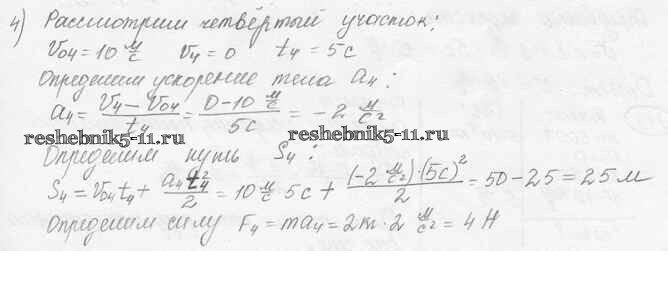 4) Рассмотрим четвёртый участок:
v₀₄ = 10 м/с   v₄ = 0   t₄ = 5с
Определим ускорение тела a₄:
a₄ = (v₄ − v₀₄)/t₄ = (0 − 10 м/с)/5с = −2 м/с²
reshebnik5-11.ru   reshebnik5-11.ru
Определим путь S₄:
S₄ = v₀₄t₄ + a₄t₄²/2 = 10 м/с · 5с + ((−2 м/с²) · (5с)²)/2 = 50 − 25 = 25 м
Определим силу F₄ = ma₄ = 2кг · 2 м/с² = 4 Н